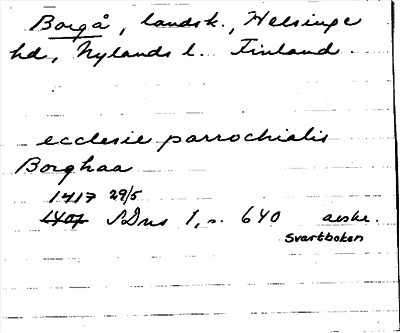 Borgå, landsk., Helsinge
hd, Nylands l. Finland.
ecclesie parrochialis
Borghaa
1417 29/5
1407 SDns 1, s. 640 avskr.
Svartboken